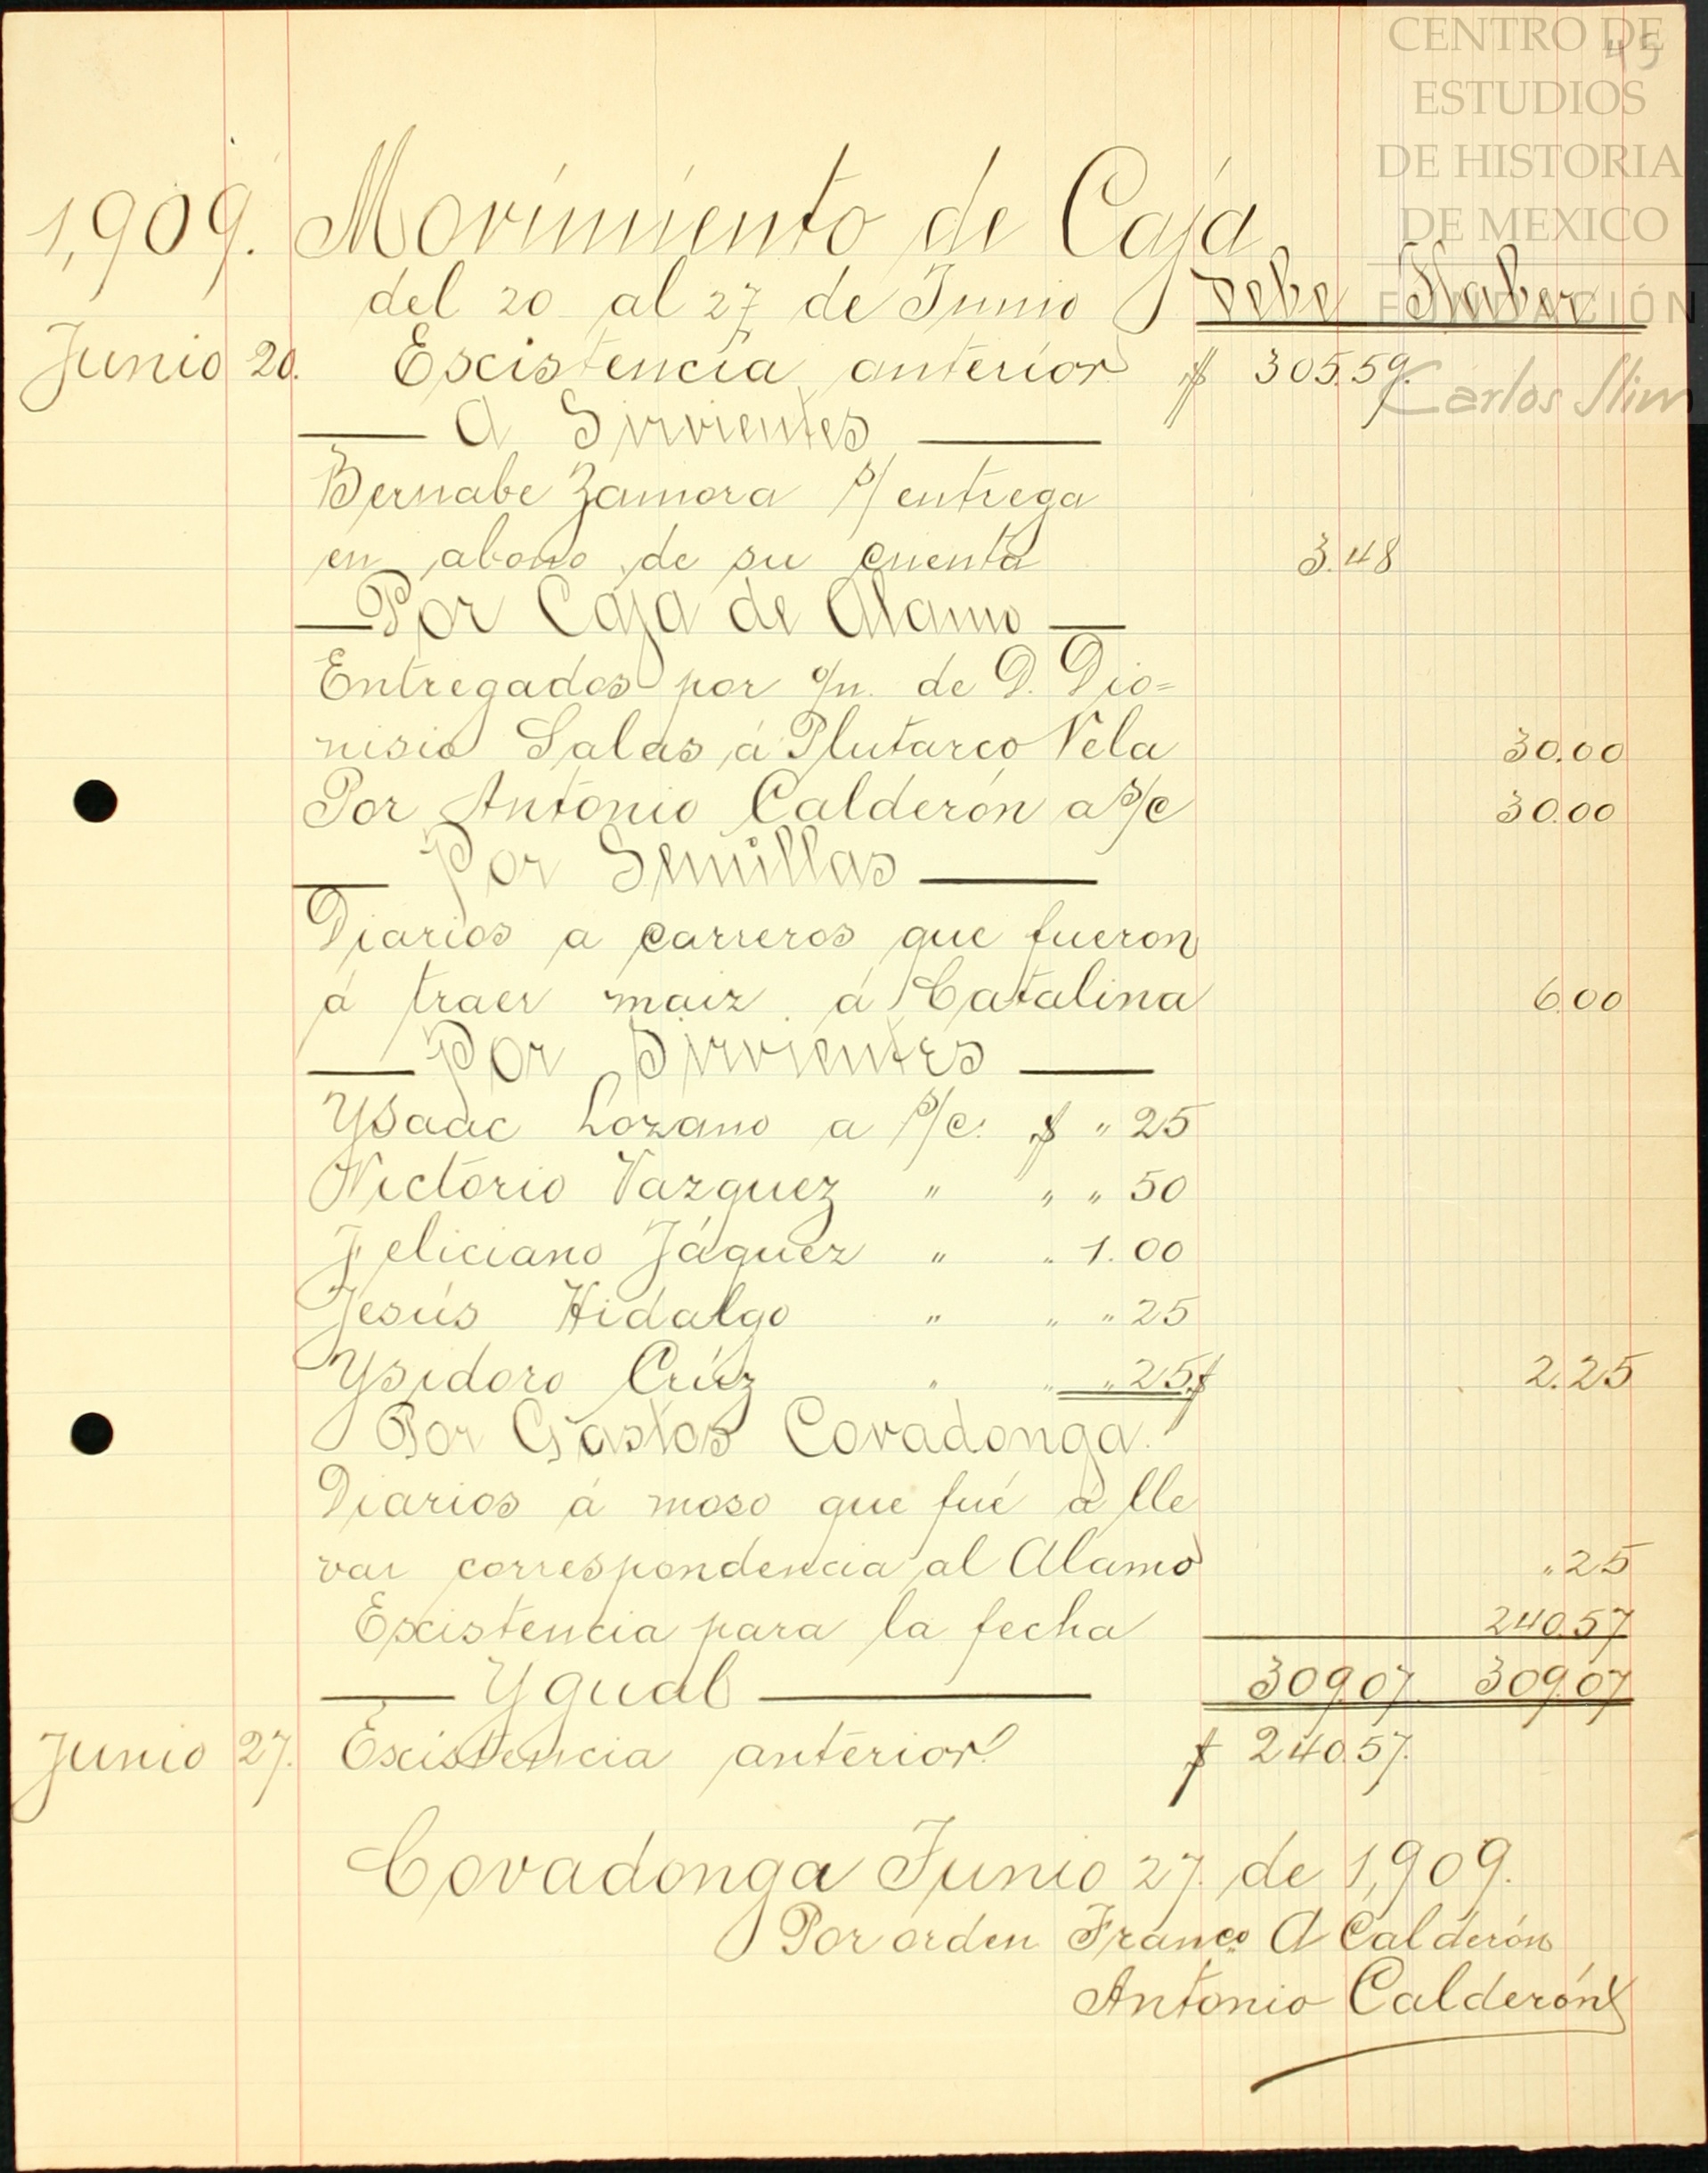 CENTRO DE
ESTUDIOS
DE HISTORIA
DE MEXICO
FUNDACIÓN
Carlos Slim
45
1,909. Movimiento de Caja
del 20 al 27 de Junio Debe Haber
Junio 20. Escistencia anterior $ 305.59.
A Sirvientes
Bernabe Zamora s/ entrega
en abono de su cuenta 3.48
Por Caja de Alamo
Entregados por o/n. de D. Dio=
nisio Salas á Plutarco Vela 30.00
Por Antonio Calderón a s/c 30.00
Por Semillas
Diarios a carreros que fueron
á traer maiz á Catalina 6.00
Por Sirvientes
Ysaac Lozano a s/c. $ " 25
Victorio Vazquez " " " 50
Feliciano Jáquez " " 1.00
Jesús Hidalgo " " " 25
Ysidoro Crúz " " " 25 $ 2.25
Por Gastos Covadonga.
Diarios á moso que fué á lle
var correspondencia al Alamo " 25
Escistencia para la fecha 240.57
Ygual 309.07 309.07
Junio 27. Escistencia anterior $ 240.57.
Covadonga Junio 27. de 1,909.
Por orden Franco A Calderón
Antonio Calderón